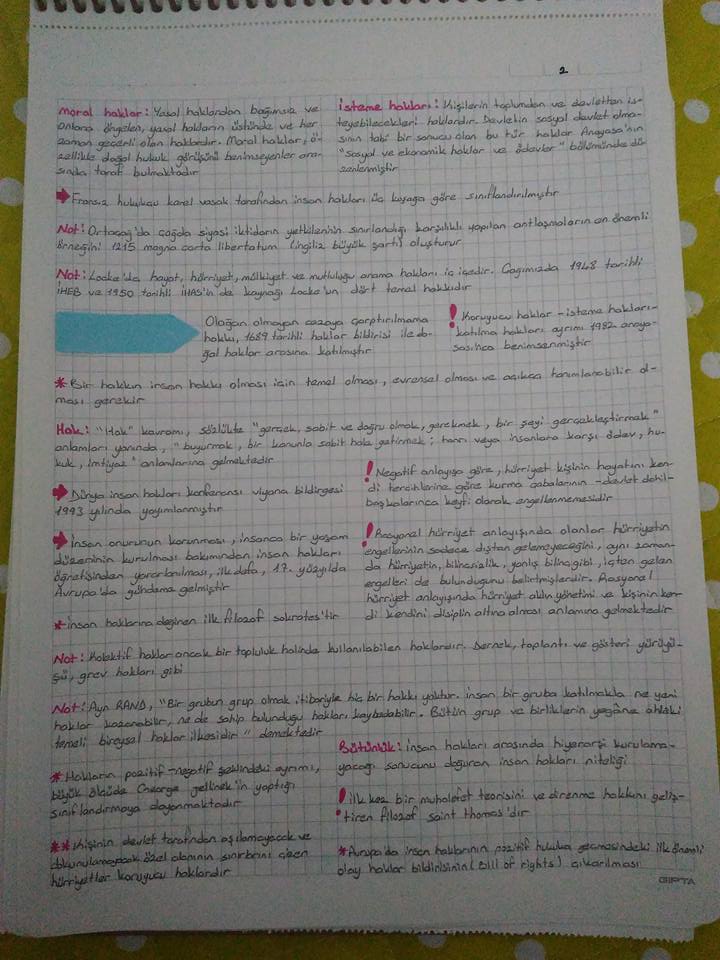 2
Moral haklar: Yasal haklardan bağımsız ve
onlara öngelen, yasal hakların üstünde ve her
zaman geçerli olan haklardır. Moral haklar, ö-
zellikle doğal hukuk görüşünü benimseyenler ara-
sında taraf bulmaktadır
isteme hakları: Kişilerin toplumdan ve devletten is-
teyebilecekleri haklardır. Devletin sosyal devlet olma-
sının tabi bir sonucu olan bu tür haklar Anayasa'nın
"sosyal ve ekonomik haklar ve ödevler" bölümünde dü-
zenlenmiştir
Fransız hukukçu karel vasak tarafından insan hakları üç kuşağa göre sınıflandırılmıştır
Not: Ortaçağ'da çağda siyasi iktidarın yetkilerinin sınırlandığı karşılıklı yapılan antlaşmaların en önemli
örneğini 1215 magna carta libertatum (ingiliz büyük şartı) oluşturur
Not: Locke'da hayat, hürriyet, mülkiyet ve mutluluğu arama hakları iç içedir. Çağımızda 1948 tarihli
İHEB ve 1950 tarihli İHAS'in de kaynağı Locke'un dört temel hakkıdır
Olağan olmayan cezaya çarptırılmama
hakkı, 1689 tarihli haklar bildirisi ile do-
ğal haklar arasına katılmıştır
! Koruyucu haklar - isteme hakları -
katılma hakları ayrımı 1982 anaya-
sasınca benimsenmiştir
* Bir hakkın insan hakkı olması için temel olması, evrensel olması ve açıkça tanımlanabilir ol-
ması gerekir
Hak: "Hak" kavramı, sözlükte "gerçek, sabit ve doğru olmak, gerekmek, bir şeyi gerçekleştirmek"
anlamları yanında, "buyurmak, bir kanunla sabit hale getirmek; tanrı veya insanlara karşı ödev, hu-
kuk, imtiyaz" anlamlarına gelmektedir
Dünya insan hakları konferansı viyana bildirgesi
1993 yılında yayımlanmıştır
! Negatif anlayışa göre, hürriyet kişinin hayatını ken-
di tercihlerine göre kurma çabalarının -devlet dahil-
başkalarınca keyfi olarak engellenmemesidir
İnsan onurunun korunması, insanca bir yaşam
düzeninin kurulması bakımından insan hakları
öğretisinden yararlanılması, ilk defa, 17. yüzyılda
Avrupa'da gündeme gelmiştir
! Rasyonel hürriyet anlayışında olanlar hürriyetin
engellerinin sadece dıştan gelemeyeceğini, aynı zaman-
da hürriyetin, bilinçsizlik, yanlış bilinç gibi, içten gelen
engelleri de bulunduğunu belirtmişlerdir. Rasyonel
hürriyet anlayışında hürriyet aklın yönetimi ve kişinin ken-
di kendini disiplin altına alması anlamına gelmektedir
* insan haklarına değinen ilk filozof sokrates'tir
Not: Kolektif haklar ancak bir topluluk halinde kullanılabilen haklardır. Dernek, toplantı ve gösteri yürüyü-
şü, grev hakları gibi
Not: Ayn RAND, "Bir grubun grup olmak itibariyle hiç bir hakkı yoktur. insan bir gruba katılmakla ne yeni
haklar kazanabilir, ne de sahip bulunduğu hakları kaybedebilir. Bütün grup ve birliklerin yegâne ahlâki
temeli bireysel haklar ilkesidir" demektedir
* Hakların pozitif-negatif şeklindeki ayrımı,
büyük ölçüde George gellinek'in yaptığı
sınıflandırmaya dayanmaktadır
Bütünlük: insan hakları arasında hiyerarşi kurulama-
yacağı sonucunu doğuran insan hakları niteliği
! ilk kez bir muhalefet teorisini ve direnme hakkını geliş-
tiren filozof saint thomas'dır
** Kişinin devlet tarafından aşılamayacak ve
dokunulamayacak özel alanının sınırlarını çizen
hürriyetler koruyucu haklardır
* Avrupa'da insan haklarının pozitif hukuka geçmesindeki ilk önemli
olay haklar bildirisinin (Bill of rights) çıkarılması
GIPTA